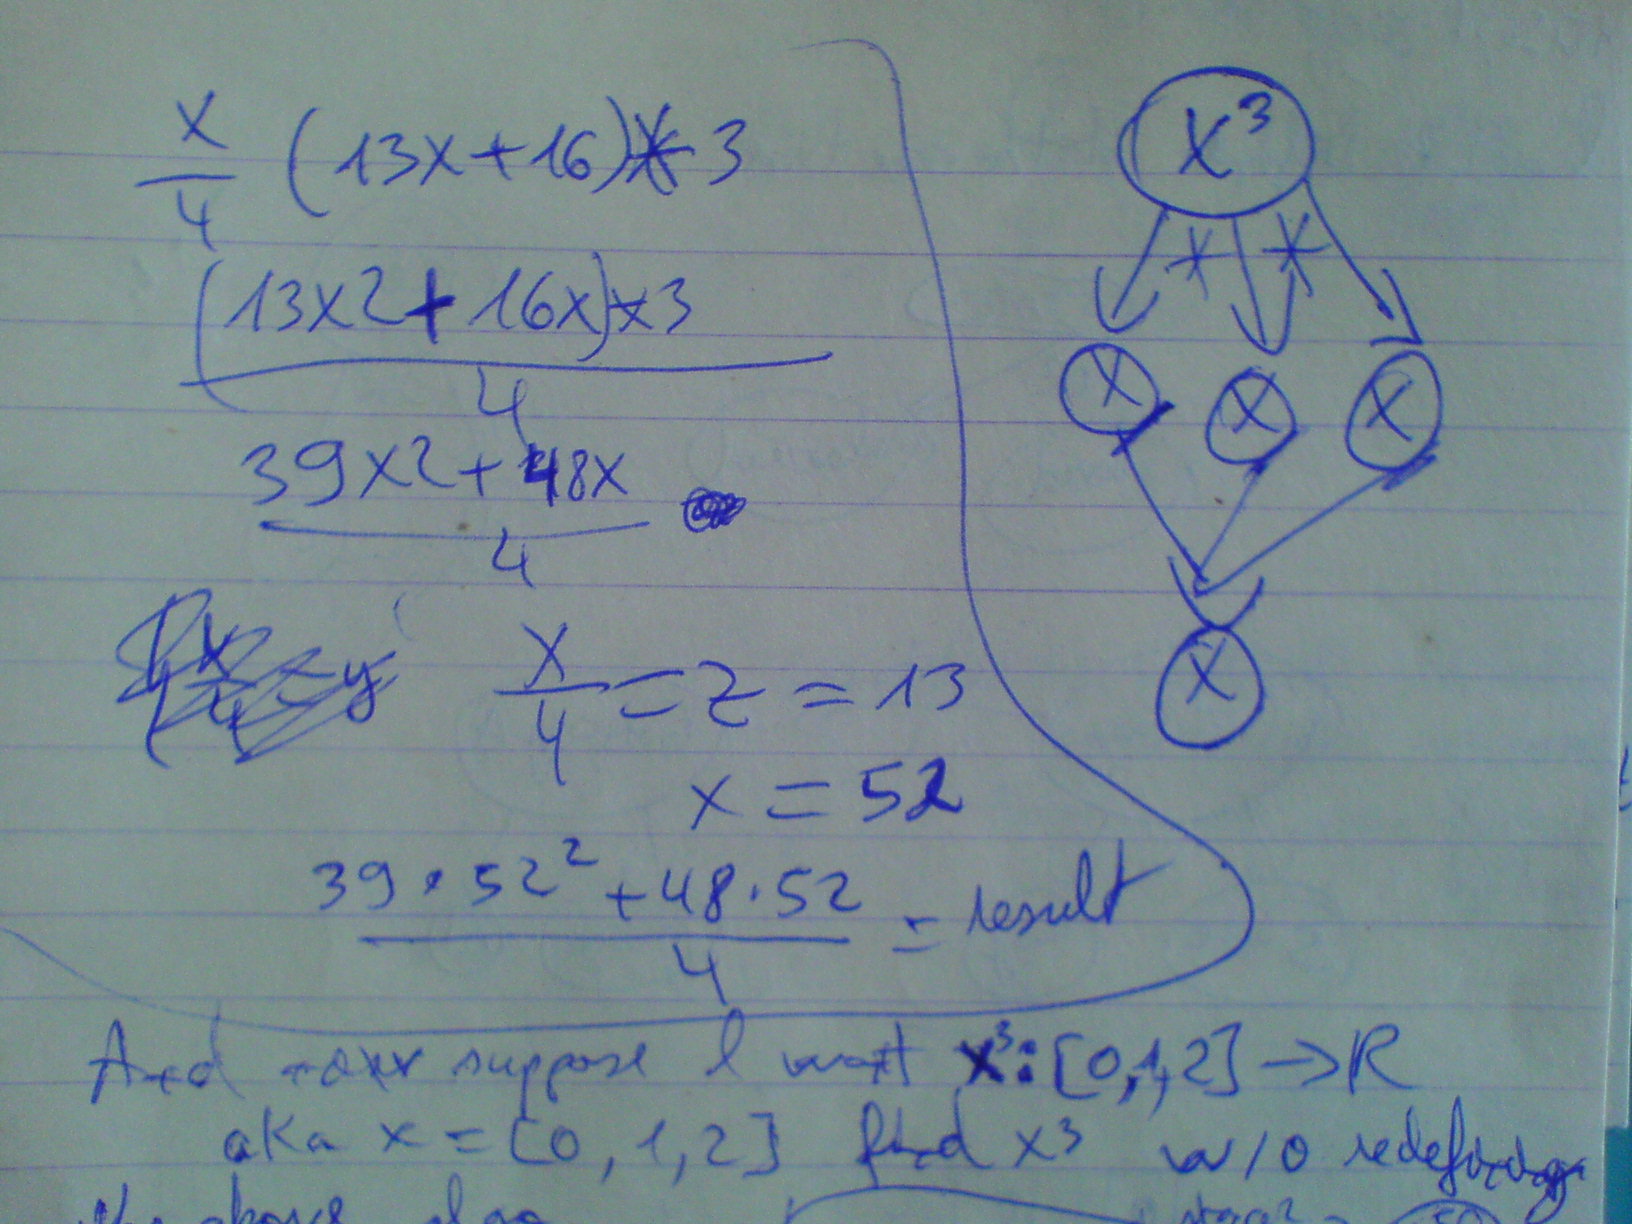 x/4 (13x+16)*3
(13x2+16x)*3
4
39x2+48x
4
x/4 = z = 13
x = 52
39·52²+48·52
4
= result
x³
* *
x x x
x
And suppose I want x³: [0,1,2] → R
aka x = [0,1,2] find x³ w/o redefining
the above